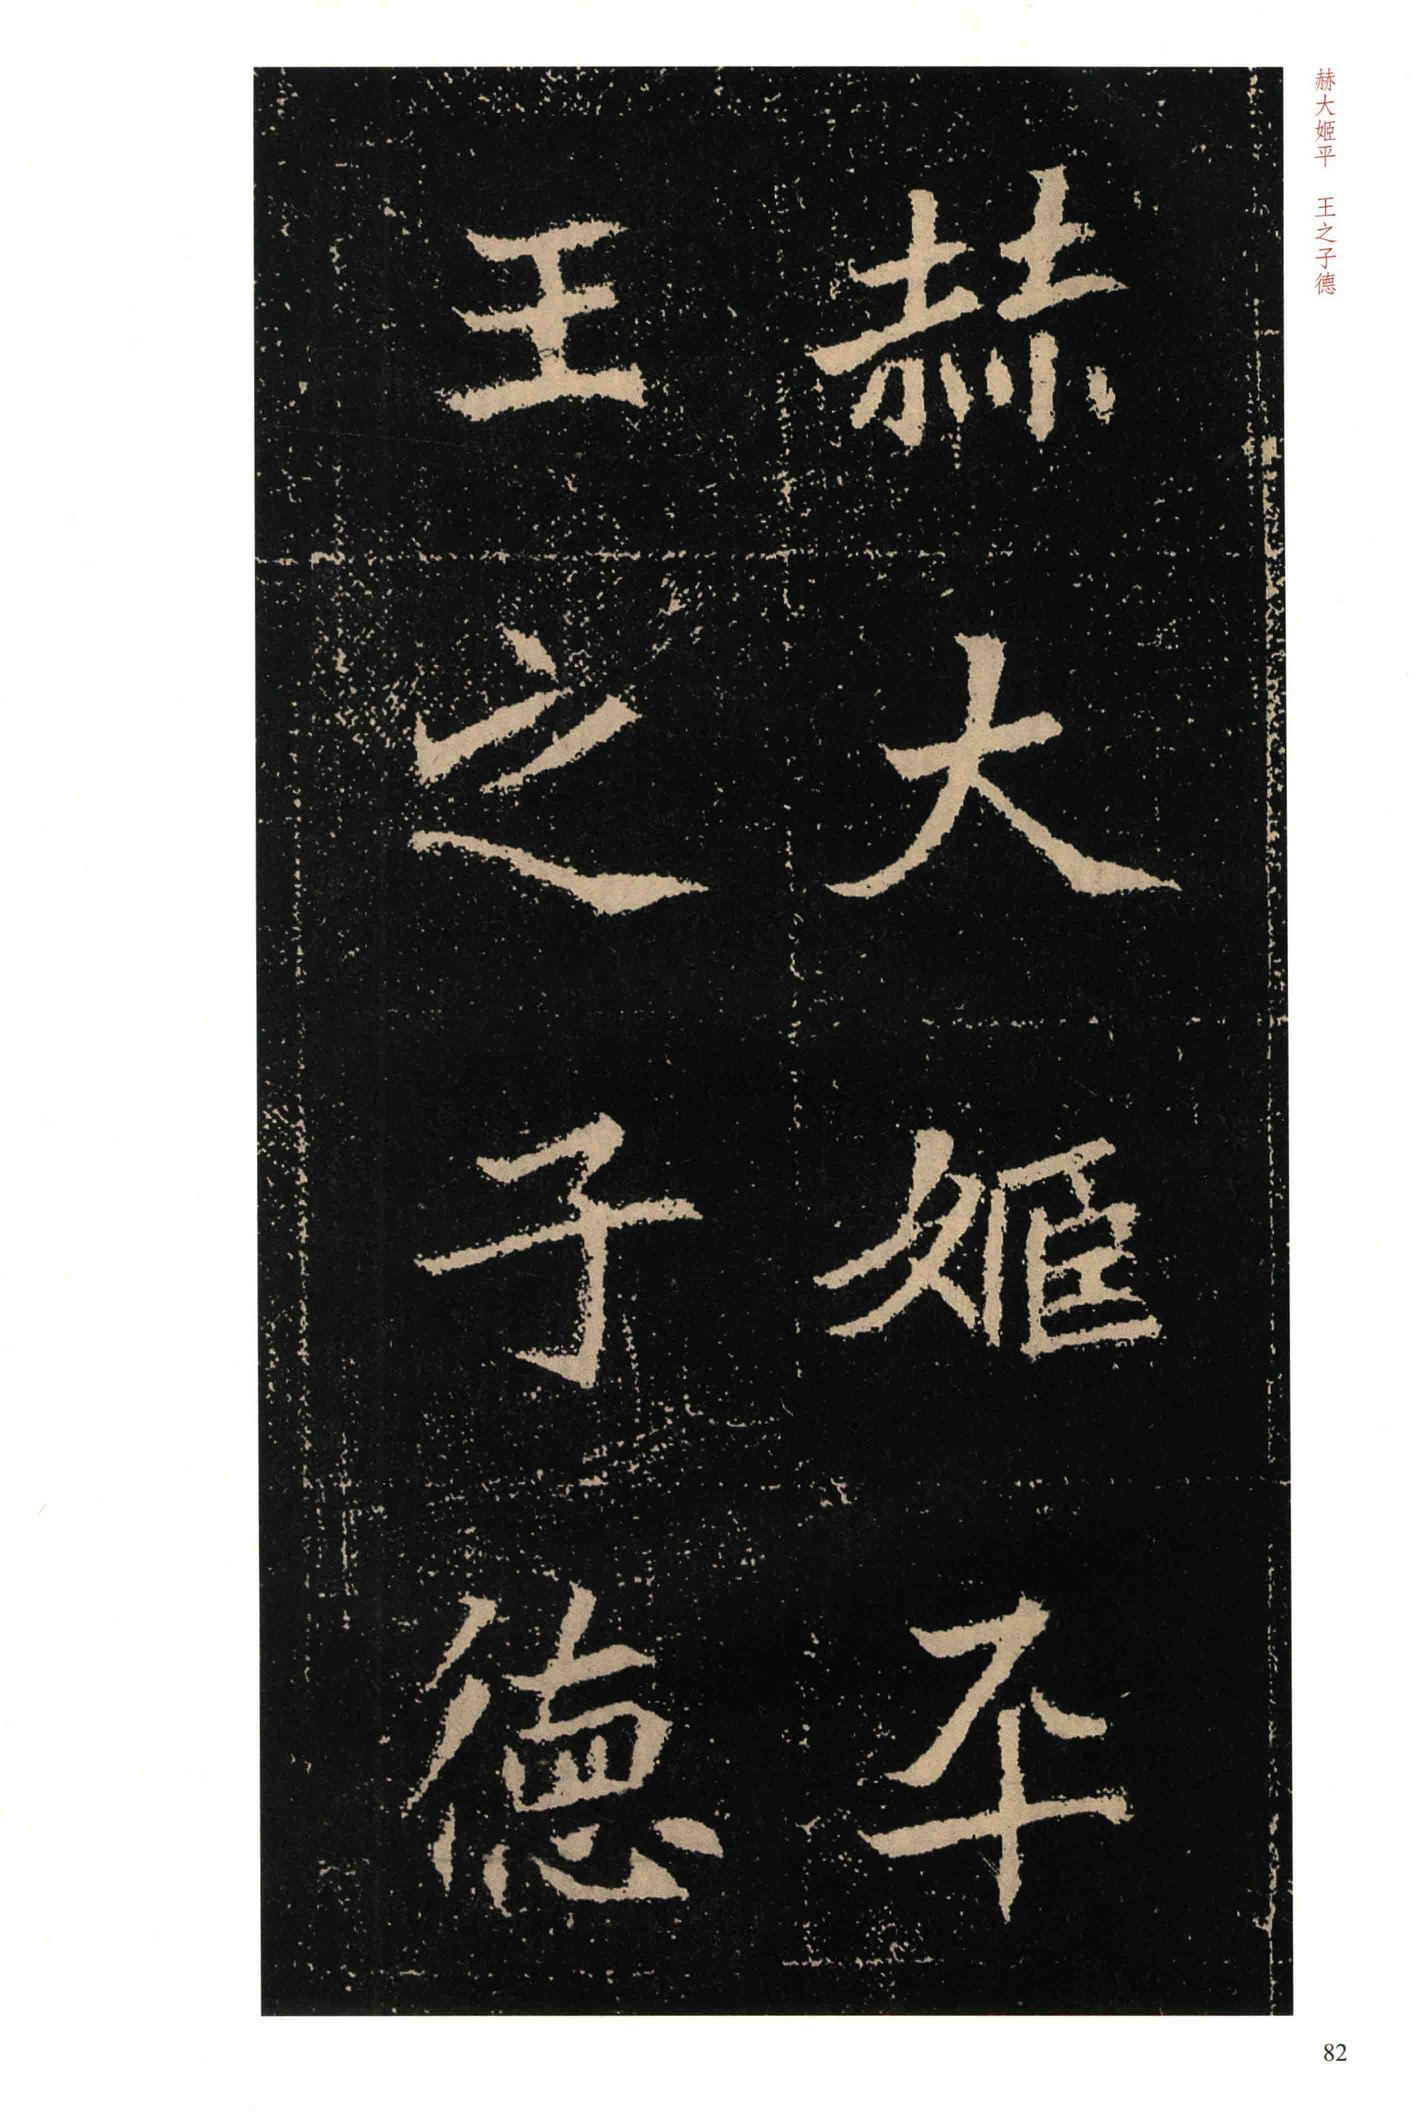 赫大姬平　王之子德
赫大姬平
王之子德
82